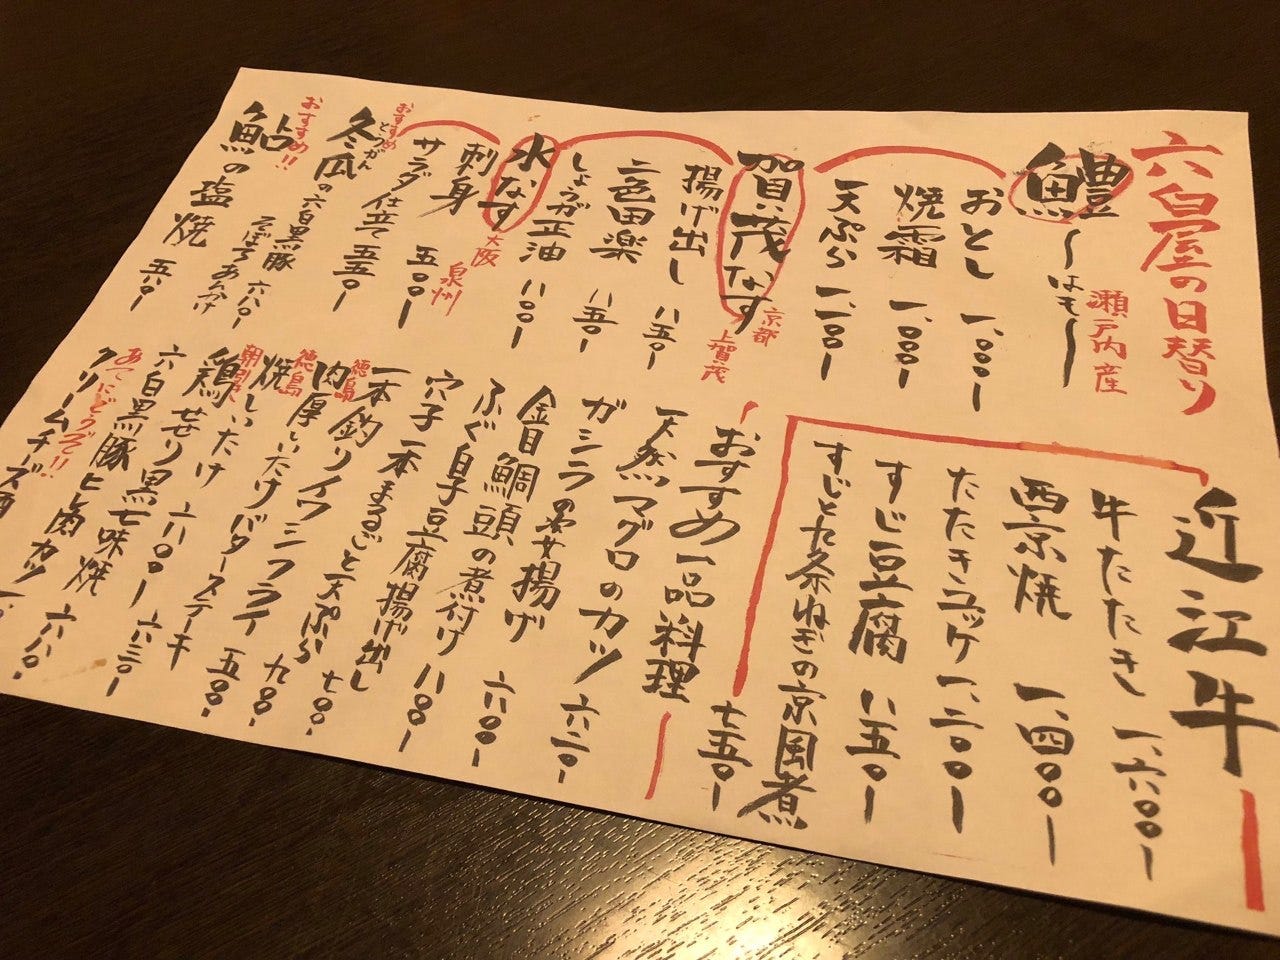 六白屋の日替り
瀬戸内産
鱧〜はも〜
おとし 一、〇〇〇-
焼霜 一、〇〇〇-
天ぷら 一、一〇〇-
賀茂なす
京都
上賀茂
揚げ出し 八五〇-
二色田楽 八五〇-
しょうが正油 八〇〇-
水なす
大阪
泉州
刺身 五〇〇-
サラダ仕立て 五五〇-
おすすめ
とうがん
冬瓜の六白黒豚そぼろあんかけ 六八〇-
おすすめ!!
鮎の塩焼 五八〇-
近江牛
牛たたき 一、六〇〇-
西京焼 一、四〇〇-
たたきユッケ 一、二〇〇-
すじ豆腐 八五〇-
すじと九条ねぎの京風煮 七五〇-
おすすめ一品料理
天然マグロのカツ
ガシラの唐揚げ 六二〇-
金目鯛頭の煮付け 六〇〇-
ふぐ白子豆腐揚げ出し 八〇〇-
穴子一本まるごと天ぷら 七〇〇-
徳島
一本釣りイワシフライ 九〇〇-
徳島
肉厚しいたけバターステーキ 五〇〇-
焼しいたけ 六〇〇-
朝引き
鶏せせり黒七味焼 六三〇-
六白黒豚ヒレ肉カツ 六八〇-
あてにどうぞ!!
クリームチーズ